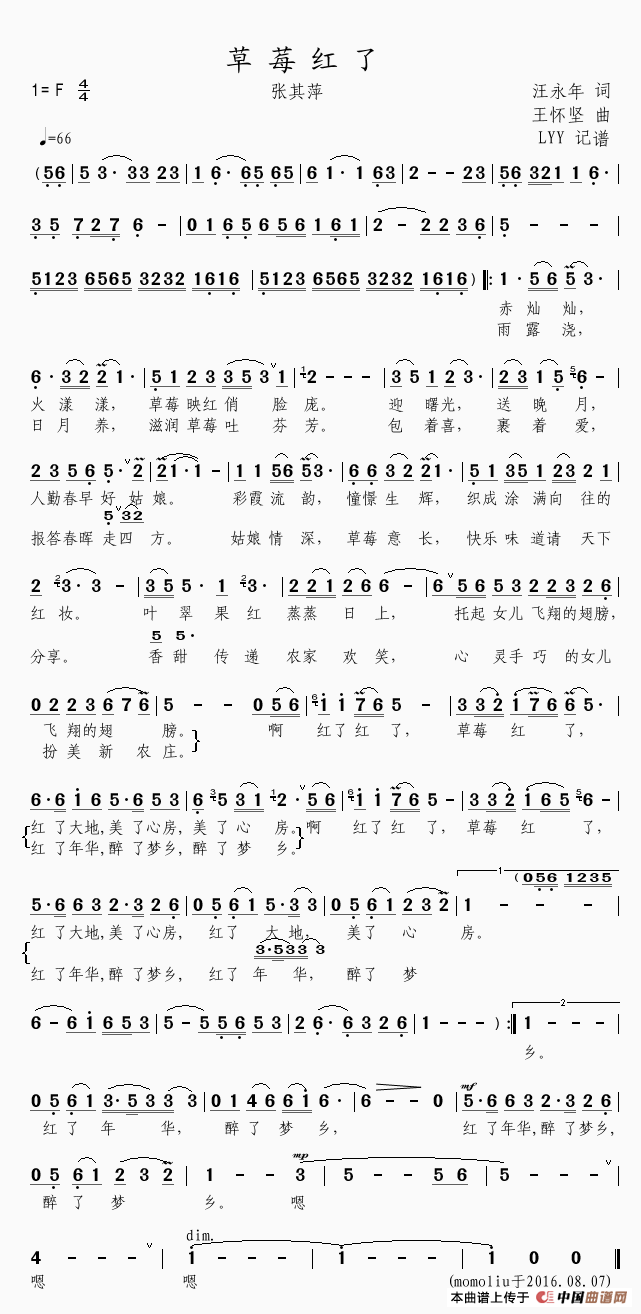 草莓红了
1=F 4/4 张其萍 汪永年 词
王怀坚 曲
♩=66 LYY 记谱
(56 | 5 3· 33 23 | 1 6· 65 65 | 6 1· 1 63 | 2 - - 23 | 56 321 1 6· |
35 727 6 - | 01 65 656 161 | 2 - 2 236 | 5 - - - |
5123 6565 3232 1616 | 5123 6565 3232 1616 ) ‖: 1· 56 5 3· |
赤 灿 灿,
雨 露 浇,
6· 32 2 1· | 51 23 353 1 | 2 - - - | 35 12 3· | 23 15 6 - |
火 漾 漾, 草莓 映红 俏 脸 庞。 迎 曙光, 送 晚 月,
日 月 养, 滋润 草莓 吐 芬 芳。 包 着喜, 裹 着 爱,
23 56 5· 2 | 21· 1 - | 11 56 53· | 66 32 21· | 51 351 23 21 |
人勤春早 好 姑 娘。 彩霞 流 韵, 憧憬 生 辉, 织成 涂 满向 往的
5 32
报答春晖 走四 方。 姑娘 情 深, 草莓 意 长, 快乐 味 道请 天下
2 3· 3 - | 35 5· 1 3· | 221 26 6 - | 6 56 53 223 26 |
红 妆。 叶 翠 果 红 蒸蒸 日 上, 托起 女儿 飞翔的翅膀,
5 5·
分享。 香 甜 传 递 农家 欢 笑, 心 灵手 巧 的女儿
02 23 676 | 5 - - 056 | 1 1 76 5 - | 332 176 65· |
飞 翔的翅 膀。 啊 红了 红 了, 草莓 红 了,
扮 美 新 农 庄。
6·6 16 5·6 53 | 6 5 31 2· 56 | 1 1 76 5 - | 332 165 6 - |
红 了大地,美 了心房,美 了 心 房。啊 红了 红 了, 草莓 红 了,
红 了年华,醉 了梦乡,醉 了 梦 乡。
1 (056 1235
5·6 63 2·3 26 | 05 61 5·3 3 | 05 61 23 2 | 1 - - - |
红 了大地,美 了心房, 红了 大 地, 美了 心 房。
3·533 3
红 了年华,醉 了梦乡, 红了 年 华, 醉了 梦
2
6 - 61 653 | 5 - 5565 53 | 2 6· 63 26 | 1 - - - ) :‖ 1 - - |
乡。
mf
05 61 3·533 3 | 01 46 61 6· | 6 - - 0 | 5·6 63 2·3 26 |
红 了 年 华, 醉 了 梦 乡, 红 了年华,醉 了梦乡,
mp
05 61 23 2 | 1 - - 3 | 5 - - 56 | 5 - - - |
醉 了 梦 乡。 嗯
dim.
4 - - - | 1 - - - | 1 - - - | 1 0 0 ‖
嗯 嗯 (momoliu于2016.08.07)
本曲谱上传于 中国曲谱网